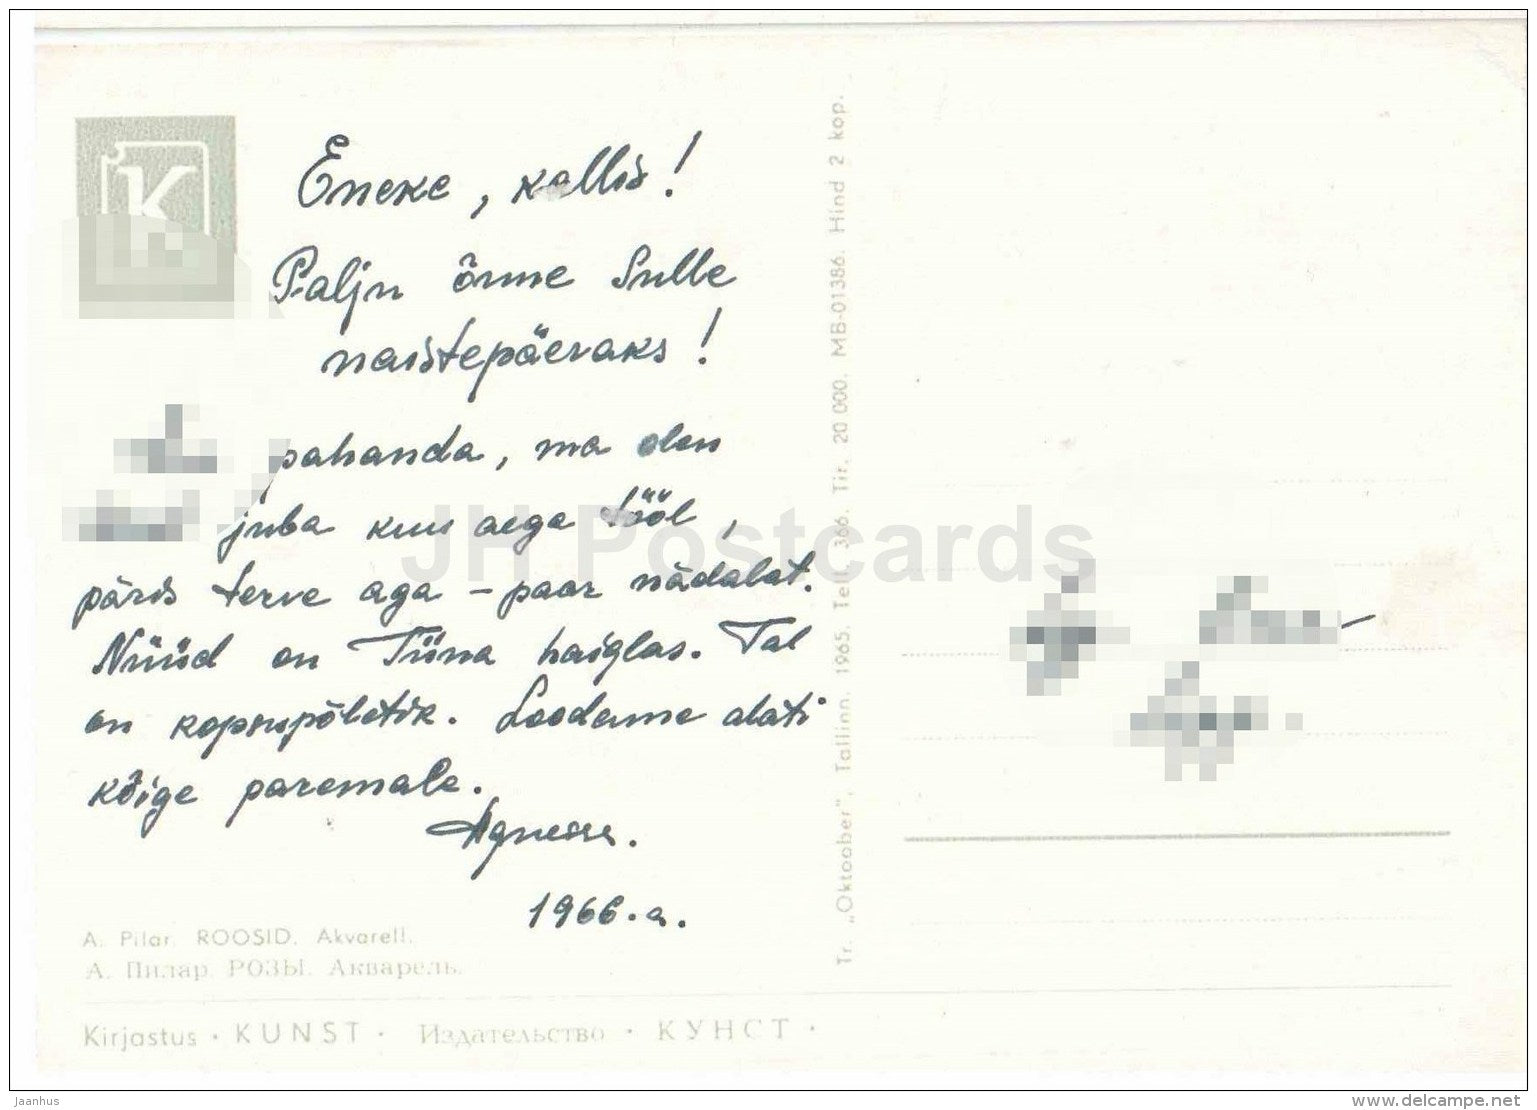 K
Eneke, kallis!
Palju õnne Sulle
naistepäevaks!
pahanda, ma olen
juba kuus aega tööl,
päris terve aga – paar nädalat.
Nüüd on Tiina haiglas. Tal
on kopsupõletik. Loodame alati
kõige paremale.
Agnessa.
1966.a.
A. Pilar. ROOSID. Akvarell.
А. Пилар. РОЗЫ. Акварель.
Kirjastus · KUNST · Издательство · КУНСТ ·
Tr. „Oktoober", Tallinn. 1965. Tell. 366. Tir. 20 000. MB-01386. Hind 2 kop.
JH Postcards
Jaanhus
www.delcampe.net